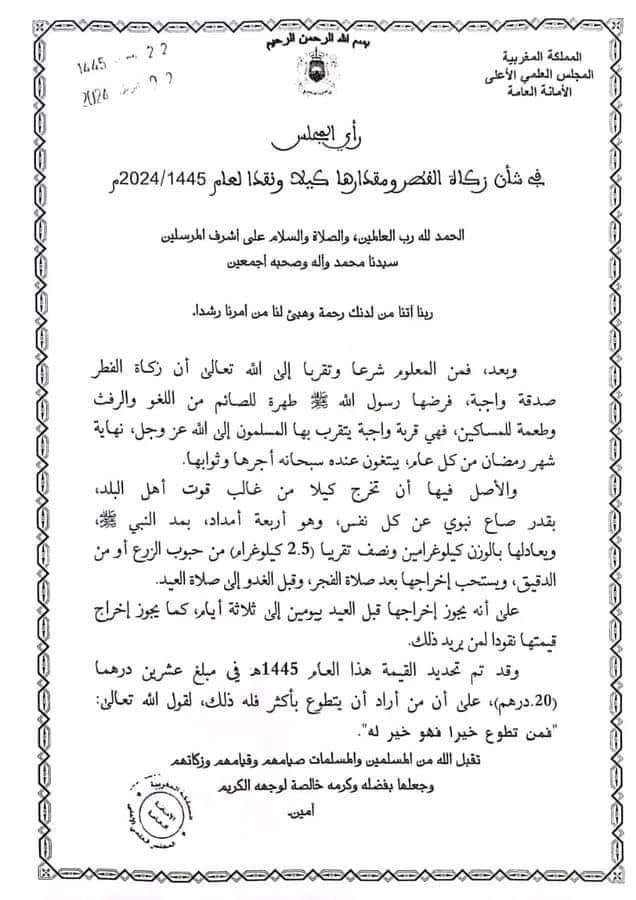 بسم الله الرحمن الرحيم
المملكة المغربية
المجلس العلمي الأعلى
الأمانة العامة
22 1445
22 2024
رأي المجلس
في شأن زكاة الفطر ومقدارها كيلا ونقدا لعام 2024/1445م
الحمد لله رب العالمين، والصلاة والسلام على أشرف المرسلين
سيدنا محمد وآله وصحبه أجمعين
ربنا آتنا من لدنك رحمة وهيئ لنا من أمرنا رشدا.
وبعد، فمن المعلوم شرعا وتقربا إلى الله تعالى أن زكاة الفطر
صدقة واجبة، فرضها رسول الله ﷺ طهرة للصائم من اللغو والرفث
وطعمة للمساكين، فهي قربة واجبة يتقرب بها المسلمون إلى الله عز وجل، نهاية
شهر رمضان من كل عام، يبتغون عنده سبحانه أجرها وثوابها.
والأصل فيها أن تخرج كيلا من غالب قوت أهل البلد،
بقدر صاع نبوي عن كل نفس، وهو أربعة أمداد، بمد النبي ﷺ،
ويعادلها بالوزن كيلوغرامين ونصف تقريبا (2.5 كيلوغرام) من حبوب الزرع أو من
الدقيق، ويستحب إخراجها بعد صلاة الفجر، وقبل الغدو إلى صلاة العيد.
على أنه يجوز إخراجها قبل العيد بيومين إلى ثلاثة أيام، كما يجوز إخراج
قيمتها نقودا لمن يريد ذلك.
وقد تم تحديد القيمة هذا العام 1445هـ في مبلغ عشرين درهما
(20.درهم)، على أن من أراد أن يتطوع بأكثر فله ذلك، لقول الله تعالى:
"فمن تطوع خيرا فهو خير له".
تقبل الله من المسلمين والمسلمات صيامهم وقيامهم وزكاتهم
وجعلها بفضله وكرمه خالصة لوجهه الكريم
آمين.
المملكة المغربية
الأمانة العامة
المجلس العلمي الأعلى